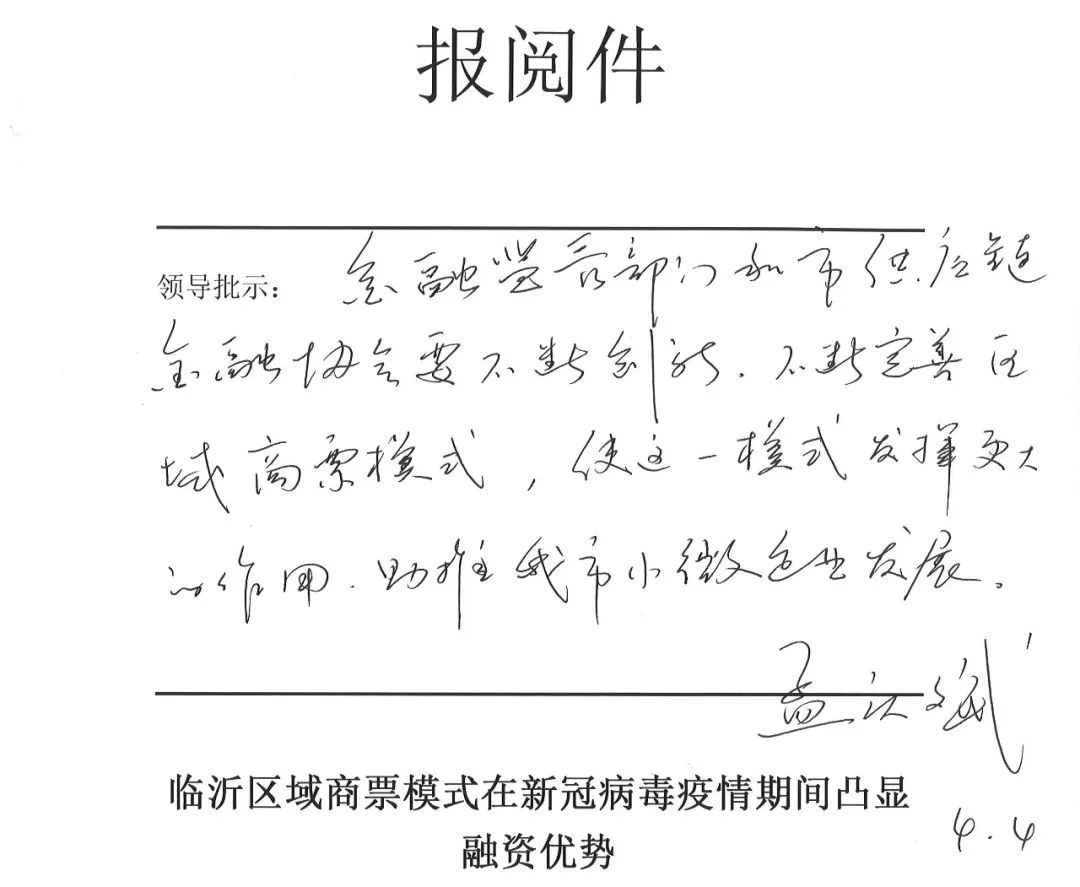 报阅件
领导批示：
金融监管部门和市供应链
金融协会要不断创新，不断完善区
域商票模式，使这一模式发挥更大
的作用，助推我市小微企业发展。
孟庆斌
4.4
临沂区域商票模式在新冠病毒疫情期间凸显
融资优势